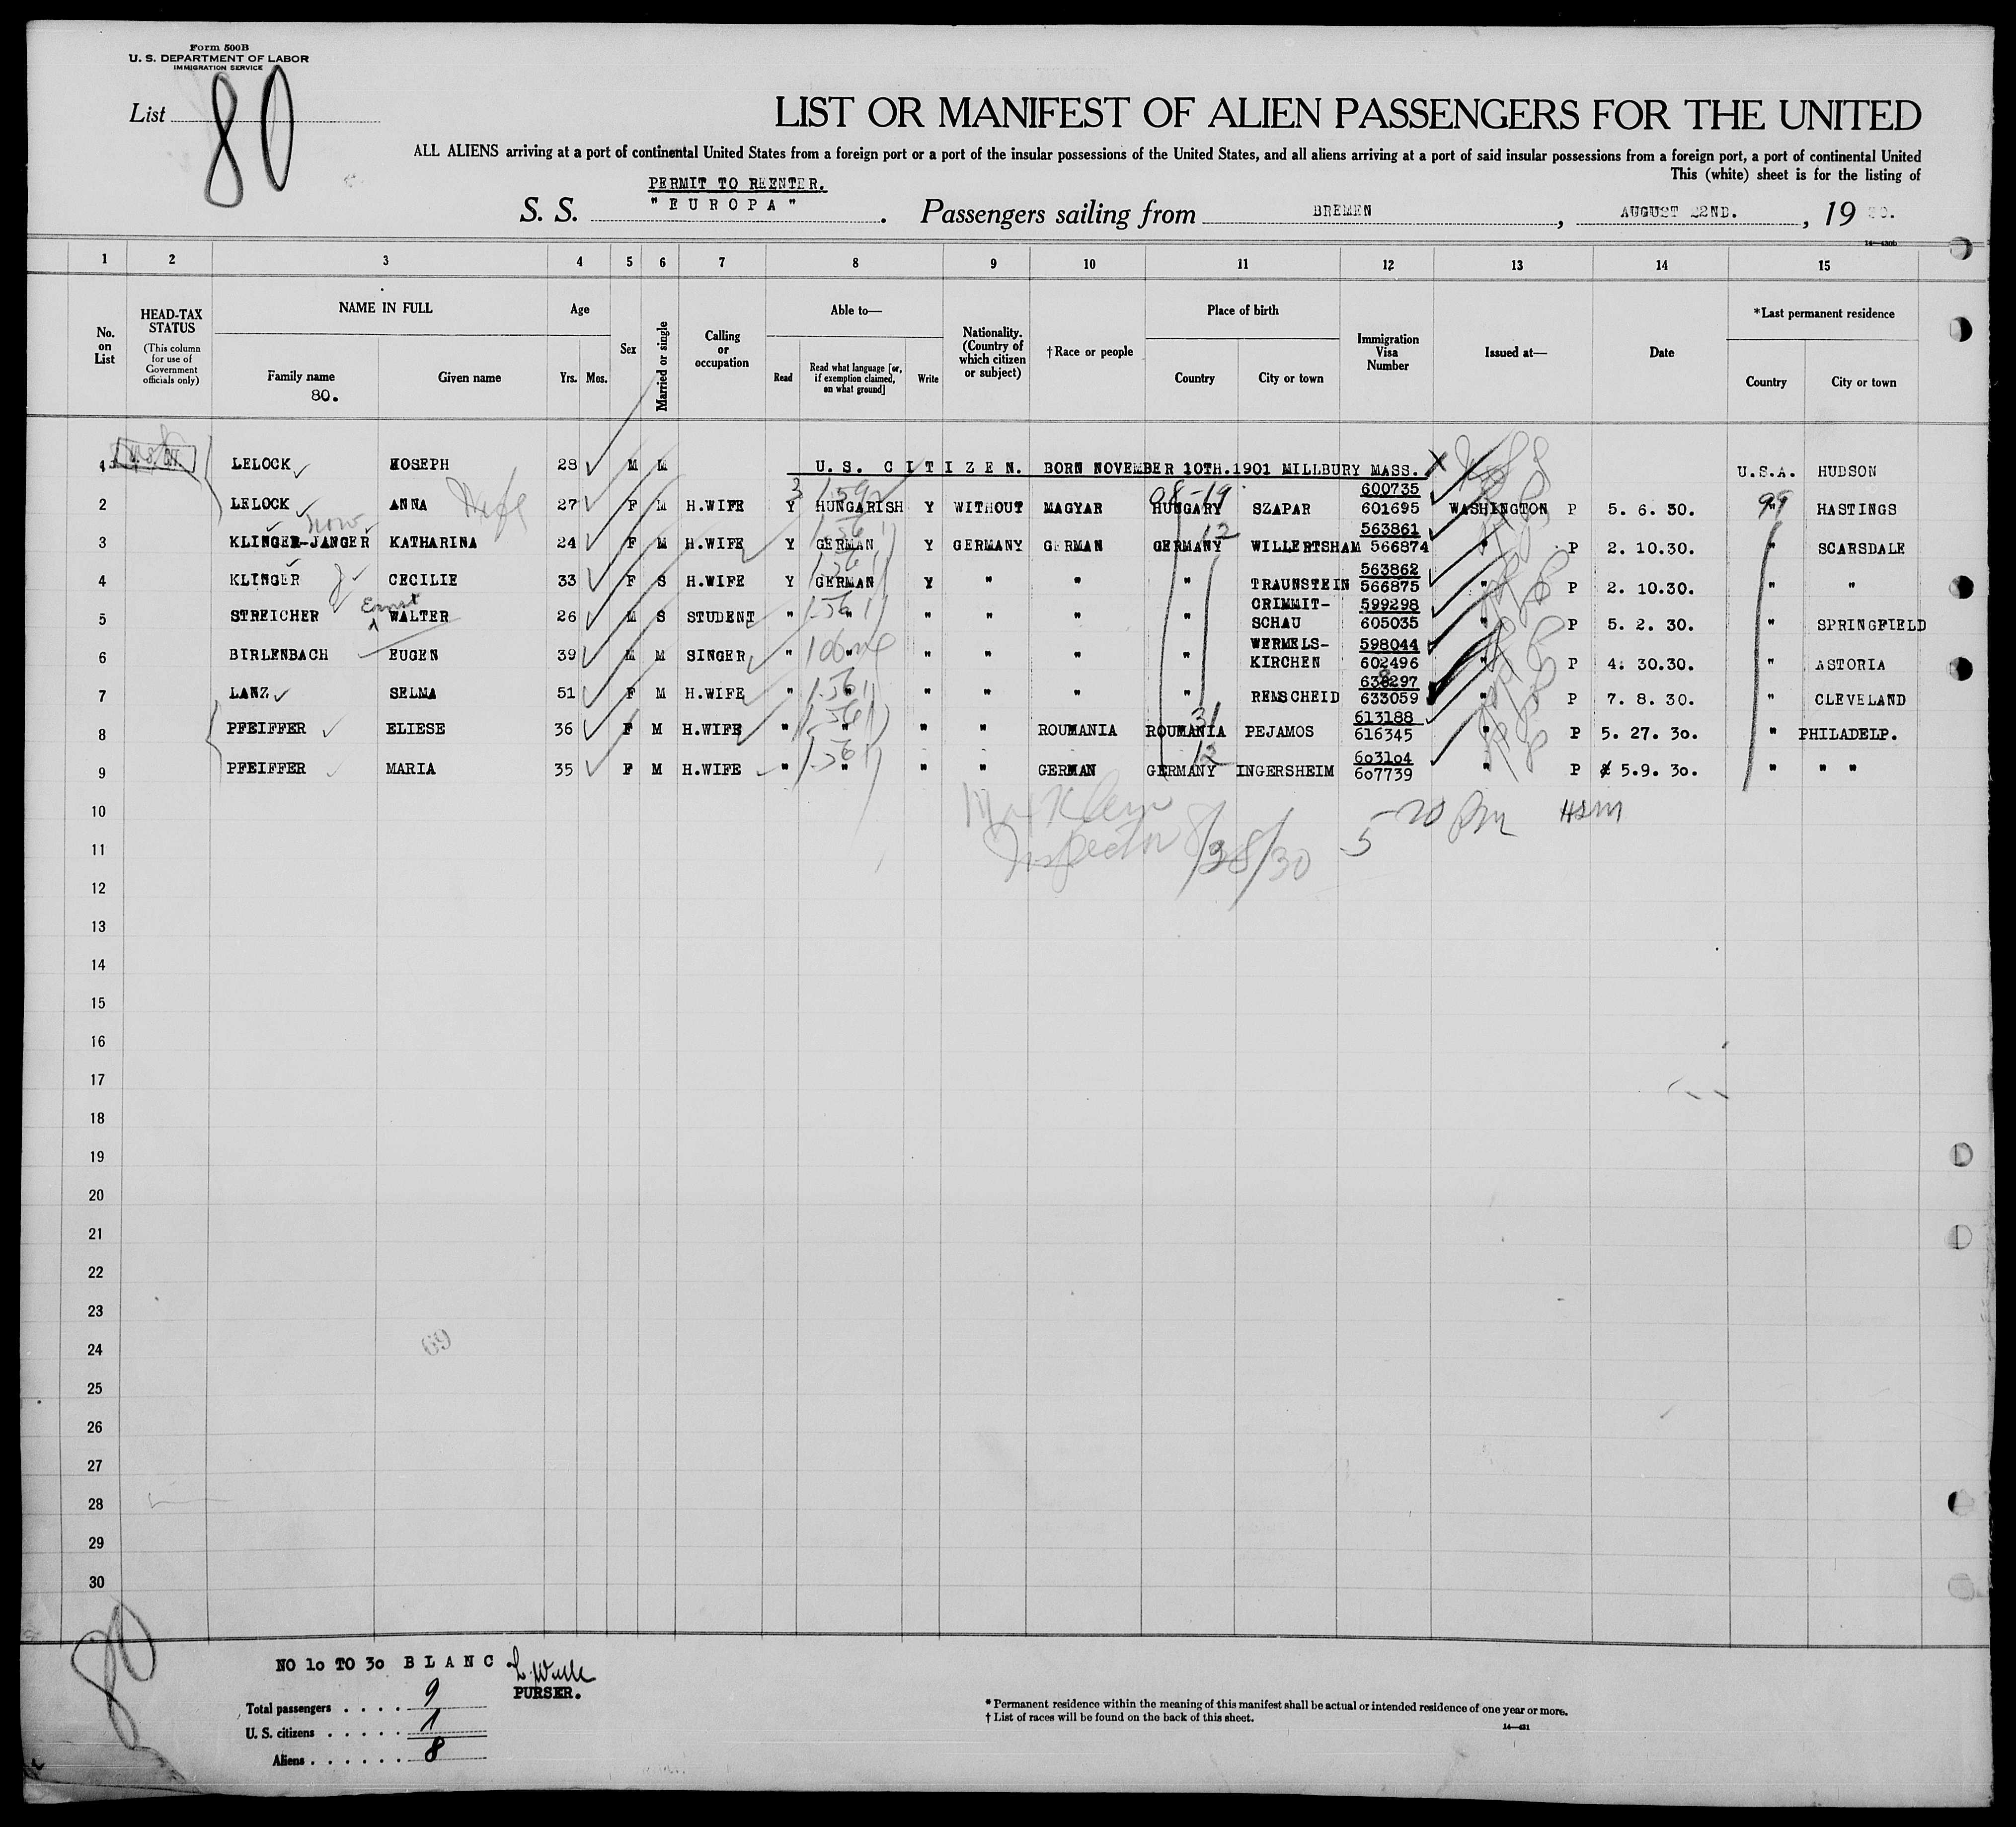 Form 500B
U. S. DEPARTMENT OF LABOR
IMMIGRATION SERVICE
List 80
LIST OR MANIFEST OF ALIEN PASSENGERS FOR THE UNITED
ALL ALIENS arriving at a port of continental United States from a foreign port or a port of the insular possessions of the United States, and all aliens arriving at a port of said insular possessions from a foreign port, a port of continental United
This (white) sheet is for the listing of
PERMIT TO REENTER.
S. S. "EUROPA". Passengers sailing from BREMEN, AUGUST 22ND., 19 30.
14—430b
1 2 3 4 5 6 7 8 9 10 11 12 13 14 15
No. on List
HEAD-TAX STATUS
(This column for use of Government officials only)
NAME IN FULL
Family name
80.
Given name
Age
Yrs. Mos.
Sex
Married or single
Calling or occupation
Able to—
Read
Read what language [or, if exemption claimed, on what ground]
Write
Nationality. (Country of which citizen or subject)
†Race or people
Place of birth
Country
City or town
Immigration Visa Number
Issued at—
Date
*Last permanent residence
Country
City or town
1 LELOCK HOSEPH 28 M M U.S. CITIZEN. BORN NOVEMBER 10TH.1901 MILLBURY MASS. X U.S.A. HUDSON
600735
2 LELOCK ANNA Wife 27 F M H.WIFE Y HUNGARISH Y WITHOUT MAGYAR HUNGARY SZAPAR 601695 WASHINGTON P 5. 6. 30. " HASTINGS
now
12
563861
3 KLINGER-JANGER KATHARINA 24 F M H.WIFE Y GERMAN Y GERMANY GERMAN GERMANY WILLERTSHAM 566874 " P 2. 10.30. " SCARSDALE
563862
4 KLINGER CECILIE 33 F S H.WIFE Y GERMAN Y " " " TRAUNSTEIN 566875 " P 2. 10.30. " "
Ernst
CRIMMIT- 599298
5 STREICHER WALTER 26 M S STUDENT " " " " " " SCHAU 605035 " P 5. 2. 30. " SPRINGFIELD
WERMELS- 598044
6 BIRLENBACH EUGEN 39 M M SINGER " " " " " " KIRCHEN 602496 " P 4. 30.30. " ASTORIA
638297
7 LANZ SELMA 51 F M H.WIFE " " " " " " REMSCHEID 633059 " P 7. 8. 30. " CLEVELAND
31
613188
8 PFEIFFER ELIESE 36 F M H.WIFE " " " " ROUMANIA ROUMANIA PEJAMOS 616345 " P 5. 27. 30. " PHILADELP.
12
603104
9 PFEIFFER MARIA 35 F M H.WIFE " " " " GERMAN GERMANY INGERSHEIM 607739 " P 5.9. 30. " " "
10
11
Inspector 8/28/30
5 20 Pm HSM
12
13
14
15
16
17
18
19
20
21
22
23
24
25
26
27
28
29
30
69
80
NO 10 TO 30 BLANC
PURSER.
Total passengers 9
U. S. citizens 1
Aliens 8
* Permanent residence within the meaning of this manifest shall be actual or intended residence of one year or more.
† List of races will be found on the back of this sheet.
14—431